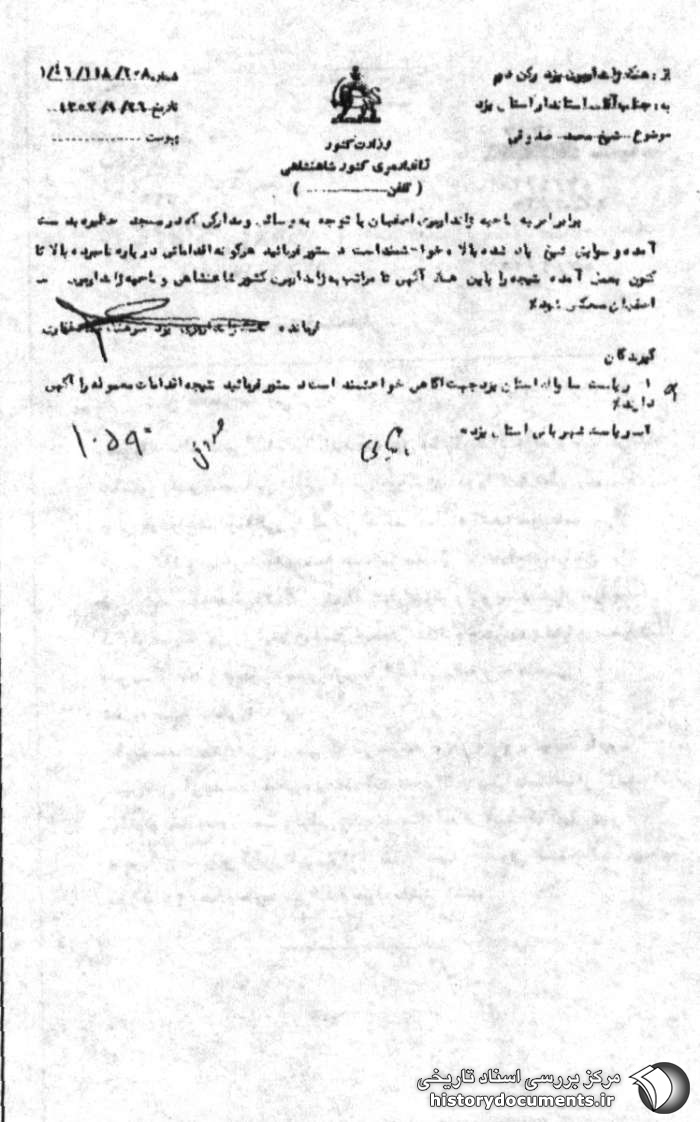 از : هنگ ژاندارمری یزد رکن دوم
به : جناب آقای استاندار استان یزد
موضوع : شیخ محمد صدوقی
وزارت کشور
ژاندارمری کشور شاهنشاهی
( تلفن ............ )
شماره ۱/۰۶/۱۱۸/۲۰۸
تاریخ
پیوست
برابر امریه ناحیه ژاندارمری اصفهان با توجه به وسائل و مدارکی که در مسجد حظیره بدست
آمده و سوابق شیخ یاد شده بالا خواهشمند است دستور فرمائید هرگونه اقداماتی درباره نامبرده بالا تا
کنون بعمل آمده نتیجه را باین هنگ آگهی تا مراتب به ژاندارمری کشور شاهنشاهی و ناحیه ژاندارمری
اصفهان منعکس شود٪
فرمانده هنگ ژاندارمری یزد سرهنگ
گیرندگان
۱ ریاست ساواک استان یزد جهت آگاهی خواهشمند است دستور فرمائید نتیجه اقدامات معموله را آگهی
دارند٪
۲ـ ریاست شهربانی استان یزد
بایگانی
صدوقی
۱۰۵۹۰
مرکز بررسی اسناد تاریخی
historydocuments.ir